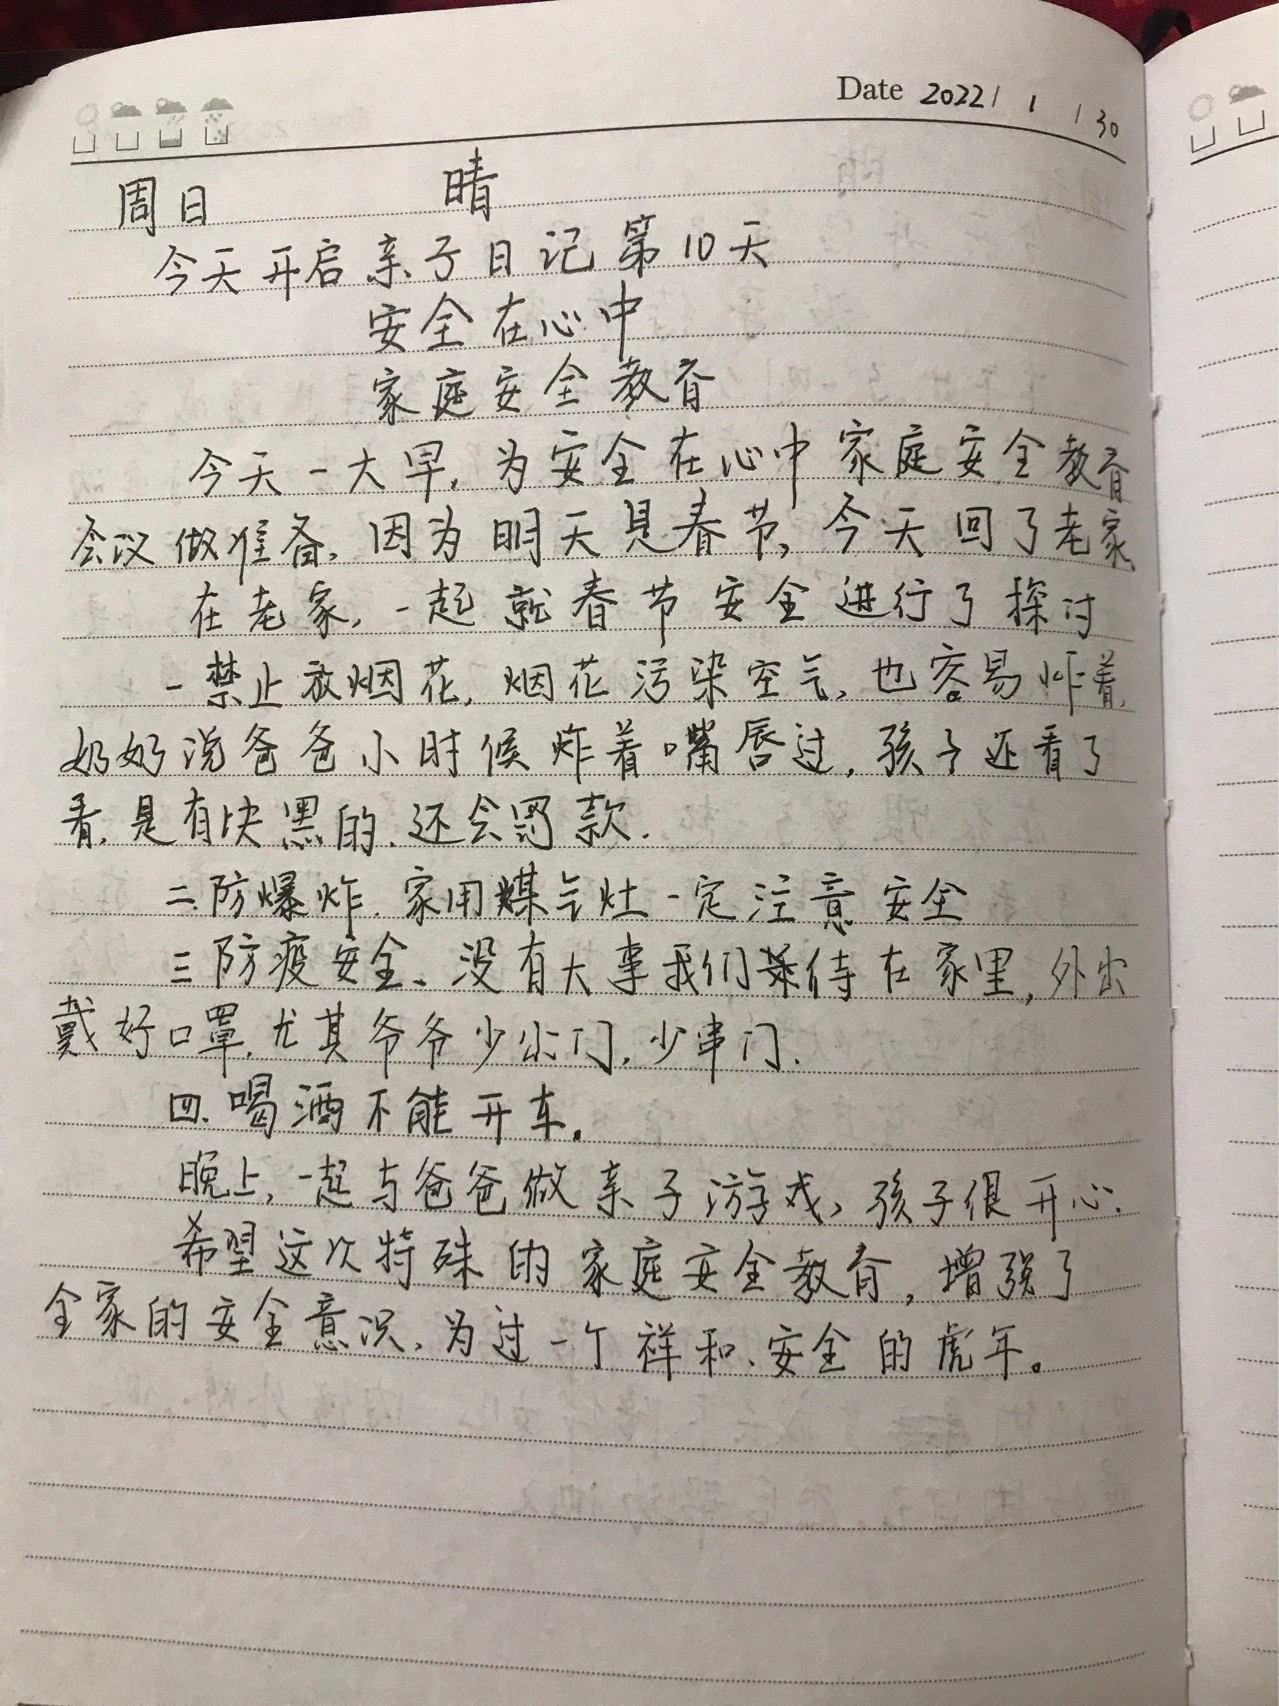 Date 2022/ 1 /30
周日 晴
今天开启亲子日记第10天
安全在心中
家庭安全教育
今天一大早,为安全在心中家庭安全教育
会议做准备,因为明天是春节,今天回了老家
在老家,一起就春节安全进行了探讨
一禁止放烟花,烟花污染空气,也容易炸着,
奶奶说爸爸小时候炸着嘴唇过,孩子还看了
看,是有块黑的,还会罚款.
二.防爆炸.家用煤气灶一定注意安全
三防疫安全、没有大事我们待在家里,外出
戴好口罩,尤其爷爷少出门,少串门.
四.喝酒不能开车.
晚上,一起与爸爸做亲子游戏,孩子很开心.
希望这次特殊的家庭安全教育,增强了
全家的安全意识,为过一个祥和、安全的虎年。